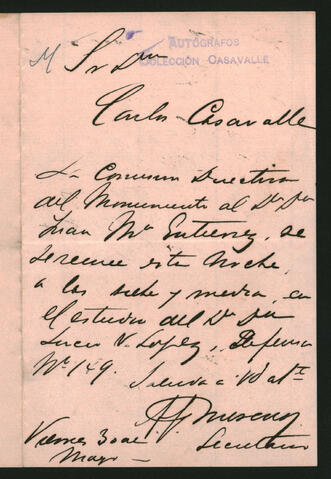 AUTÓGRAFOS
COLECCIÓN CASAVALLE
Sr Dn
Carlos Casavalle
La Comision Directiva
del Monumento al Dr Dn
Juan Ma Gutierrez, se
se reune esta Noche,
a las siete y media, en
el estudio del Dr Dn
Lucio V. Lopez, Defensa
No 149.
Saluda a Vd atte
Moreno
Secretario
Viernes 30 de
Mayo